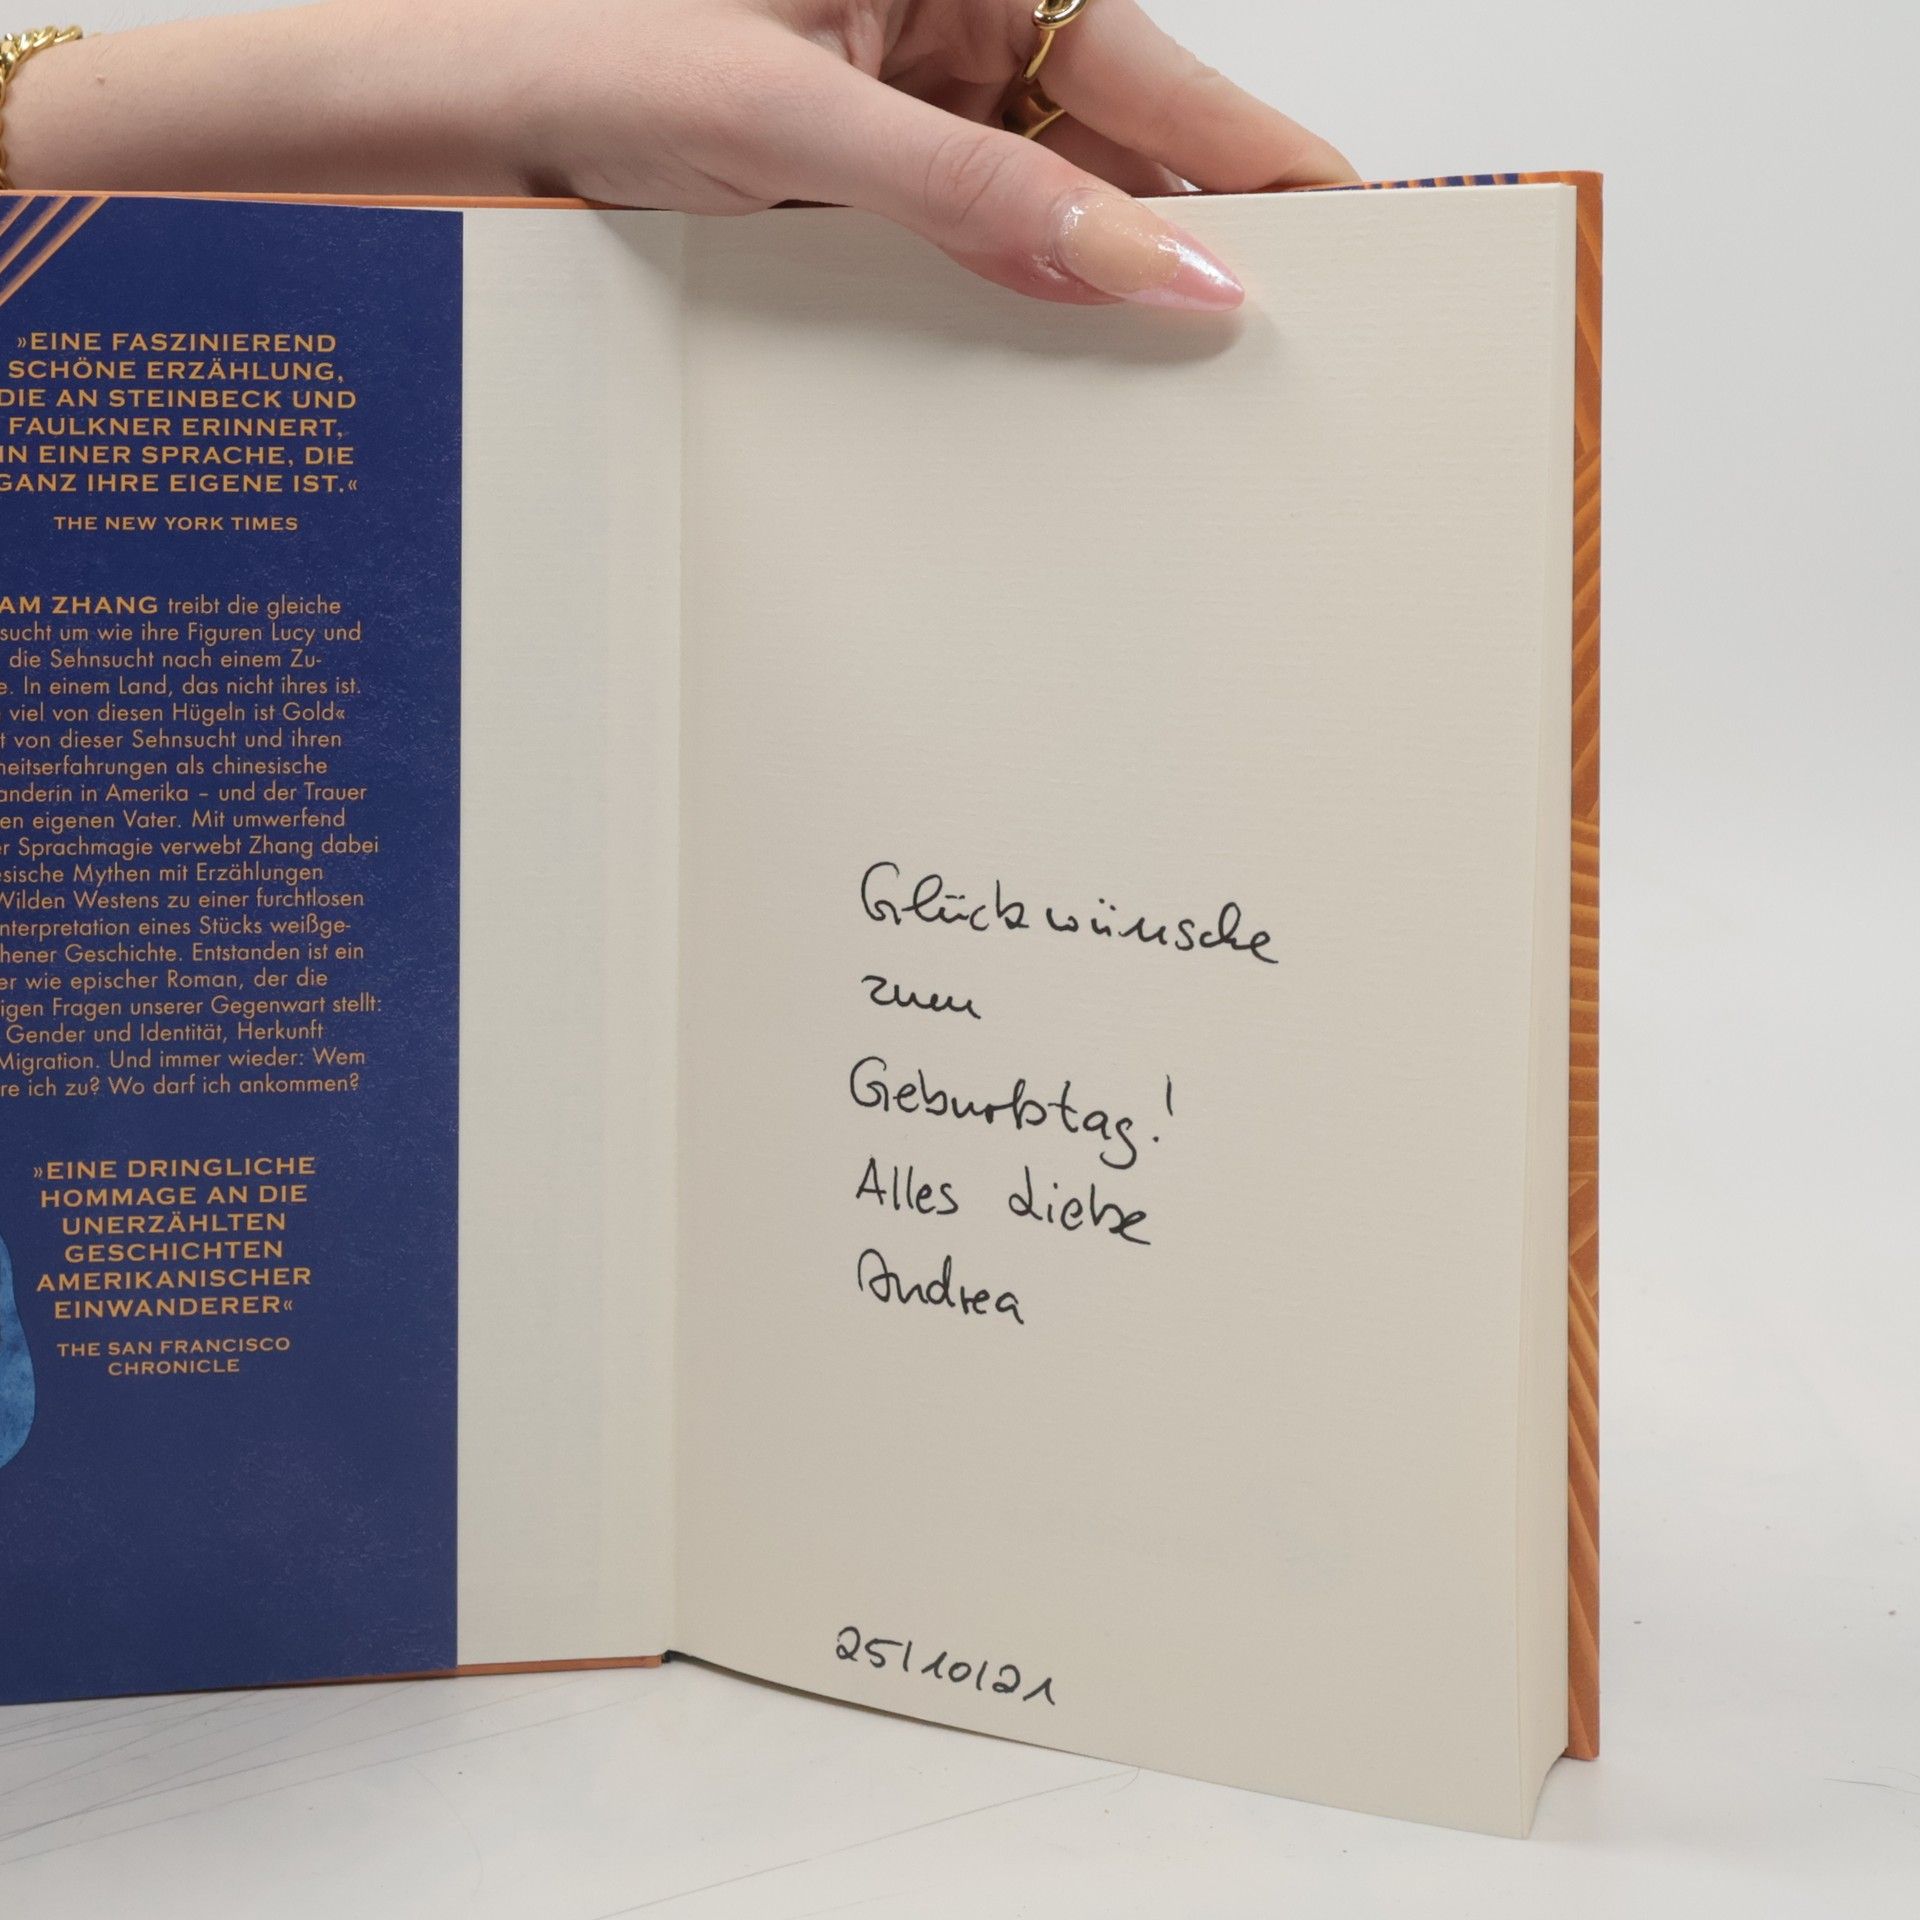 »EINE FASZINIEREND
SCHÖNE ERZÄHLUNG,
DIE AN STEINBECK UND
FAULKNER ERINNERT,
IN EINER SPRACHE, DIE
GANZ IHRE EIGENE IST.«
THE NEW YORK TIMES
AM ZHANG treibt die gleiche
sucht um wie ihre Figuren Lucy und
die Sehnsucht nach einem Zu-
e. In einem Land, das nicht ihres ist.
viel von diesen Hügeln ist Gold«
t von dieser Sehnsucht und ihren
heitserfahrungen als chinesische
anderin in Amerika – und der Trauer
en eigenen Vater. Mit umwerfend
er Sprachmagie verwebt Zhang dabei
esische Mythen mit Erzählungen
Wilden Westens zu einer furchtlosen
nterpretation eines Stücks weißge-
hener Geschichte. Entstanden ist ein
er wie epischer Roman, der die
igen Fragen unserer Gegenwart stellt:
Gender und Identität, Herkunft
Migration. Und immer wieder: Wem
re ich zu? Wo darf ich ankommen?
»EINE DRINGLICHE
HOMMAGE AN DIE
UNERZÄHLTEN
GESCHICHTEN
AMERIKANISCHER
EINWANDERER«
THE SAN FRANCISCO
CHRONICLE
Glückwünsche
zum
Geburtstag!
Alles Liebe
Andrea
25/10/21